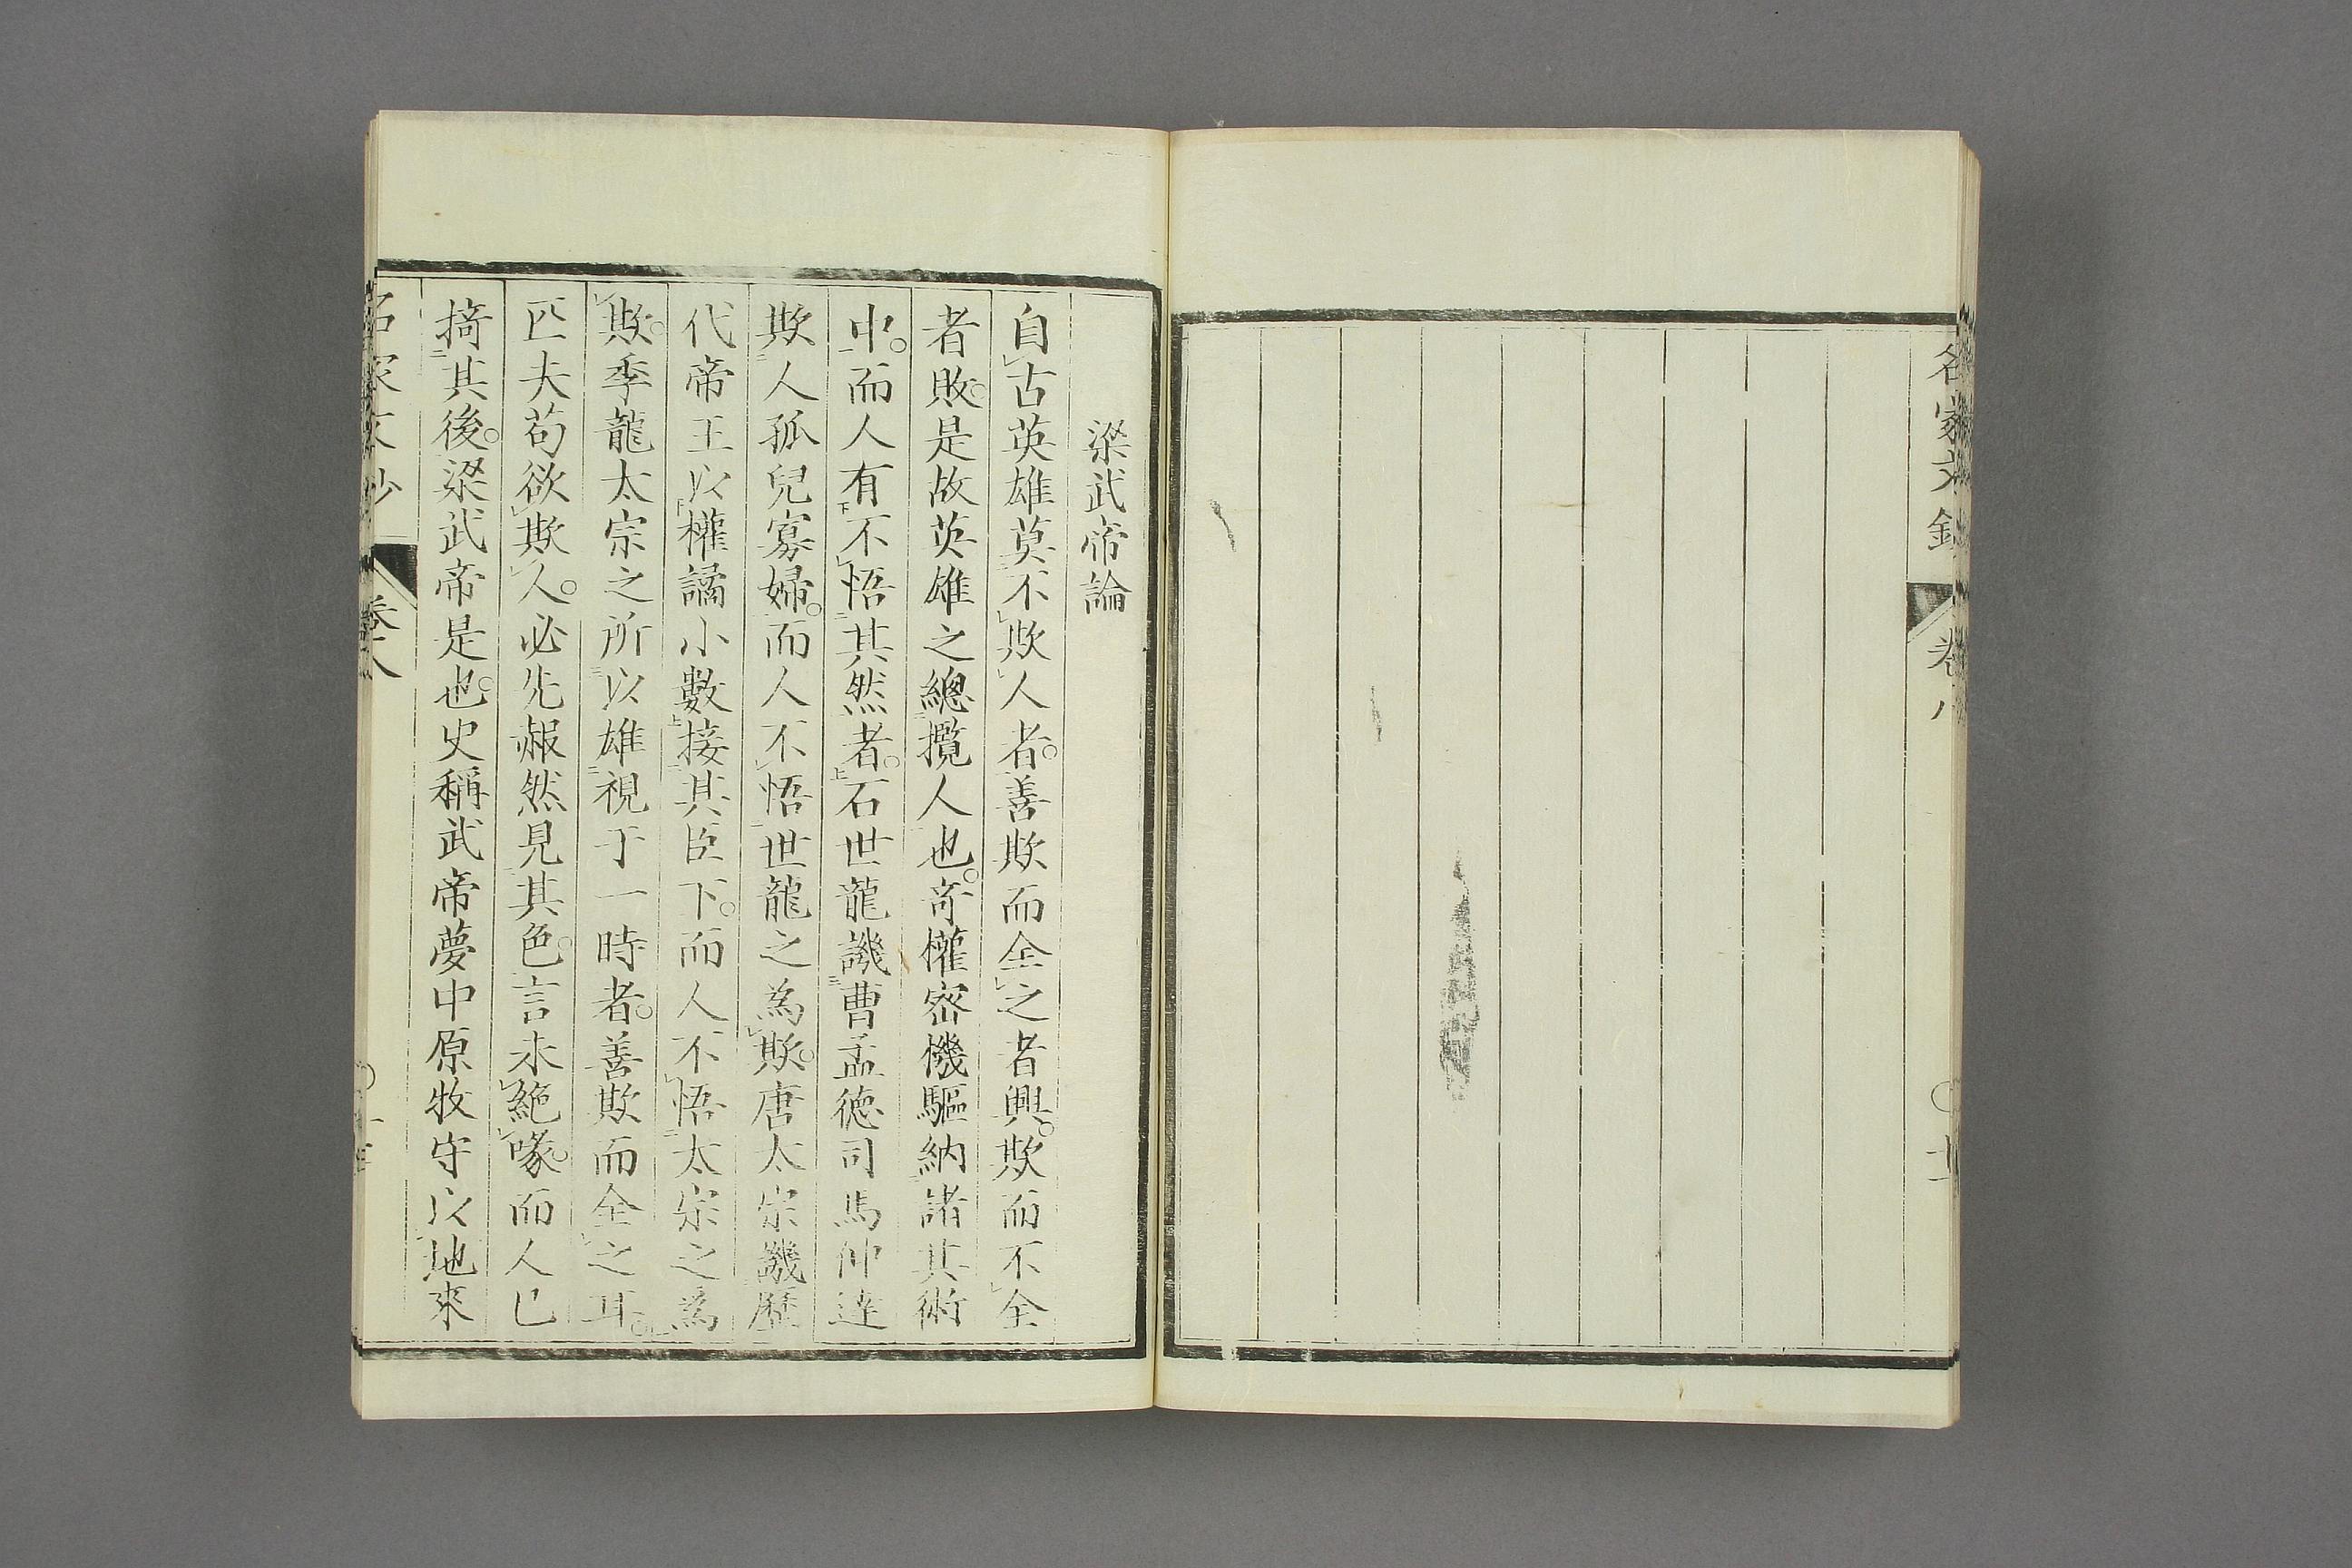 名家文鈔 卷八
梁武帝論
自古英雄莫不欺人者善欺而全之者興欺而不全
者敗是故英雄之總攬人也奇權密機驅納諸其術
中而人有不悟其然者石世龍譏曹孟德司馬仲達
欺人孤兒寡婦而人不悟世龍之為欺唐太宗譏歷
代帝王以權譎小數接其臣下而人不悟太宗之為
欺季龍太宗之所以雄視于一時者善欺而全之耳
匹夫苟欲欺人必先赧然見其色言未絕喙而人已
掎其後梁武帝是也史稱武帝夢中原牧守以地來
名家文鈔 卷八